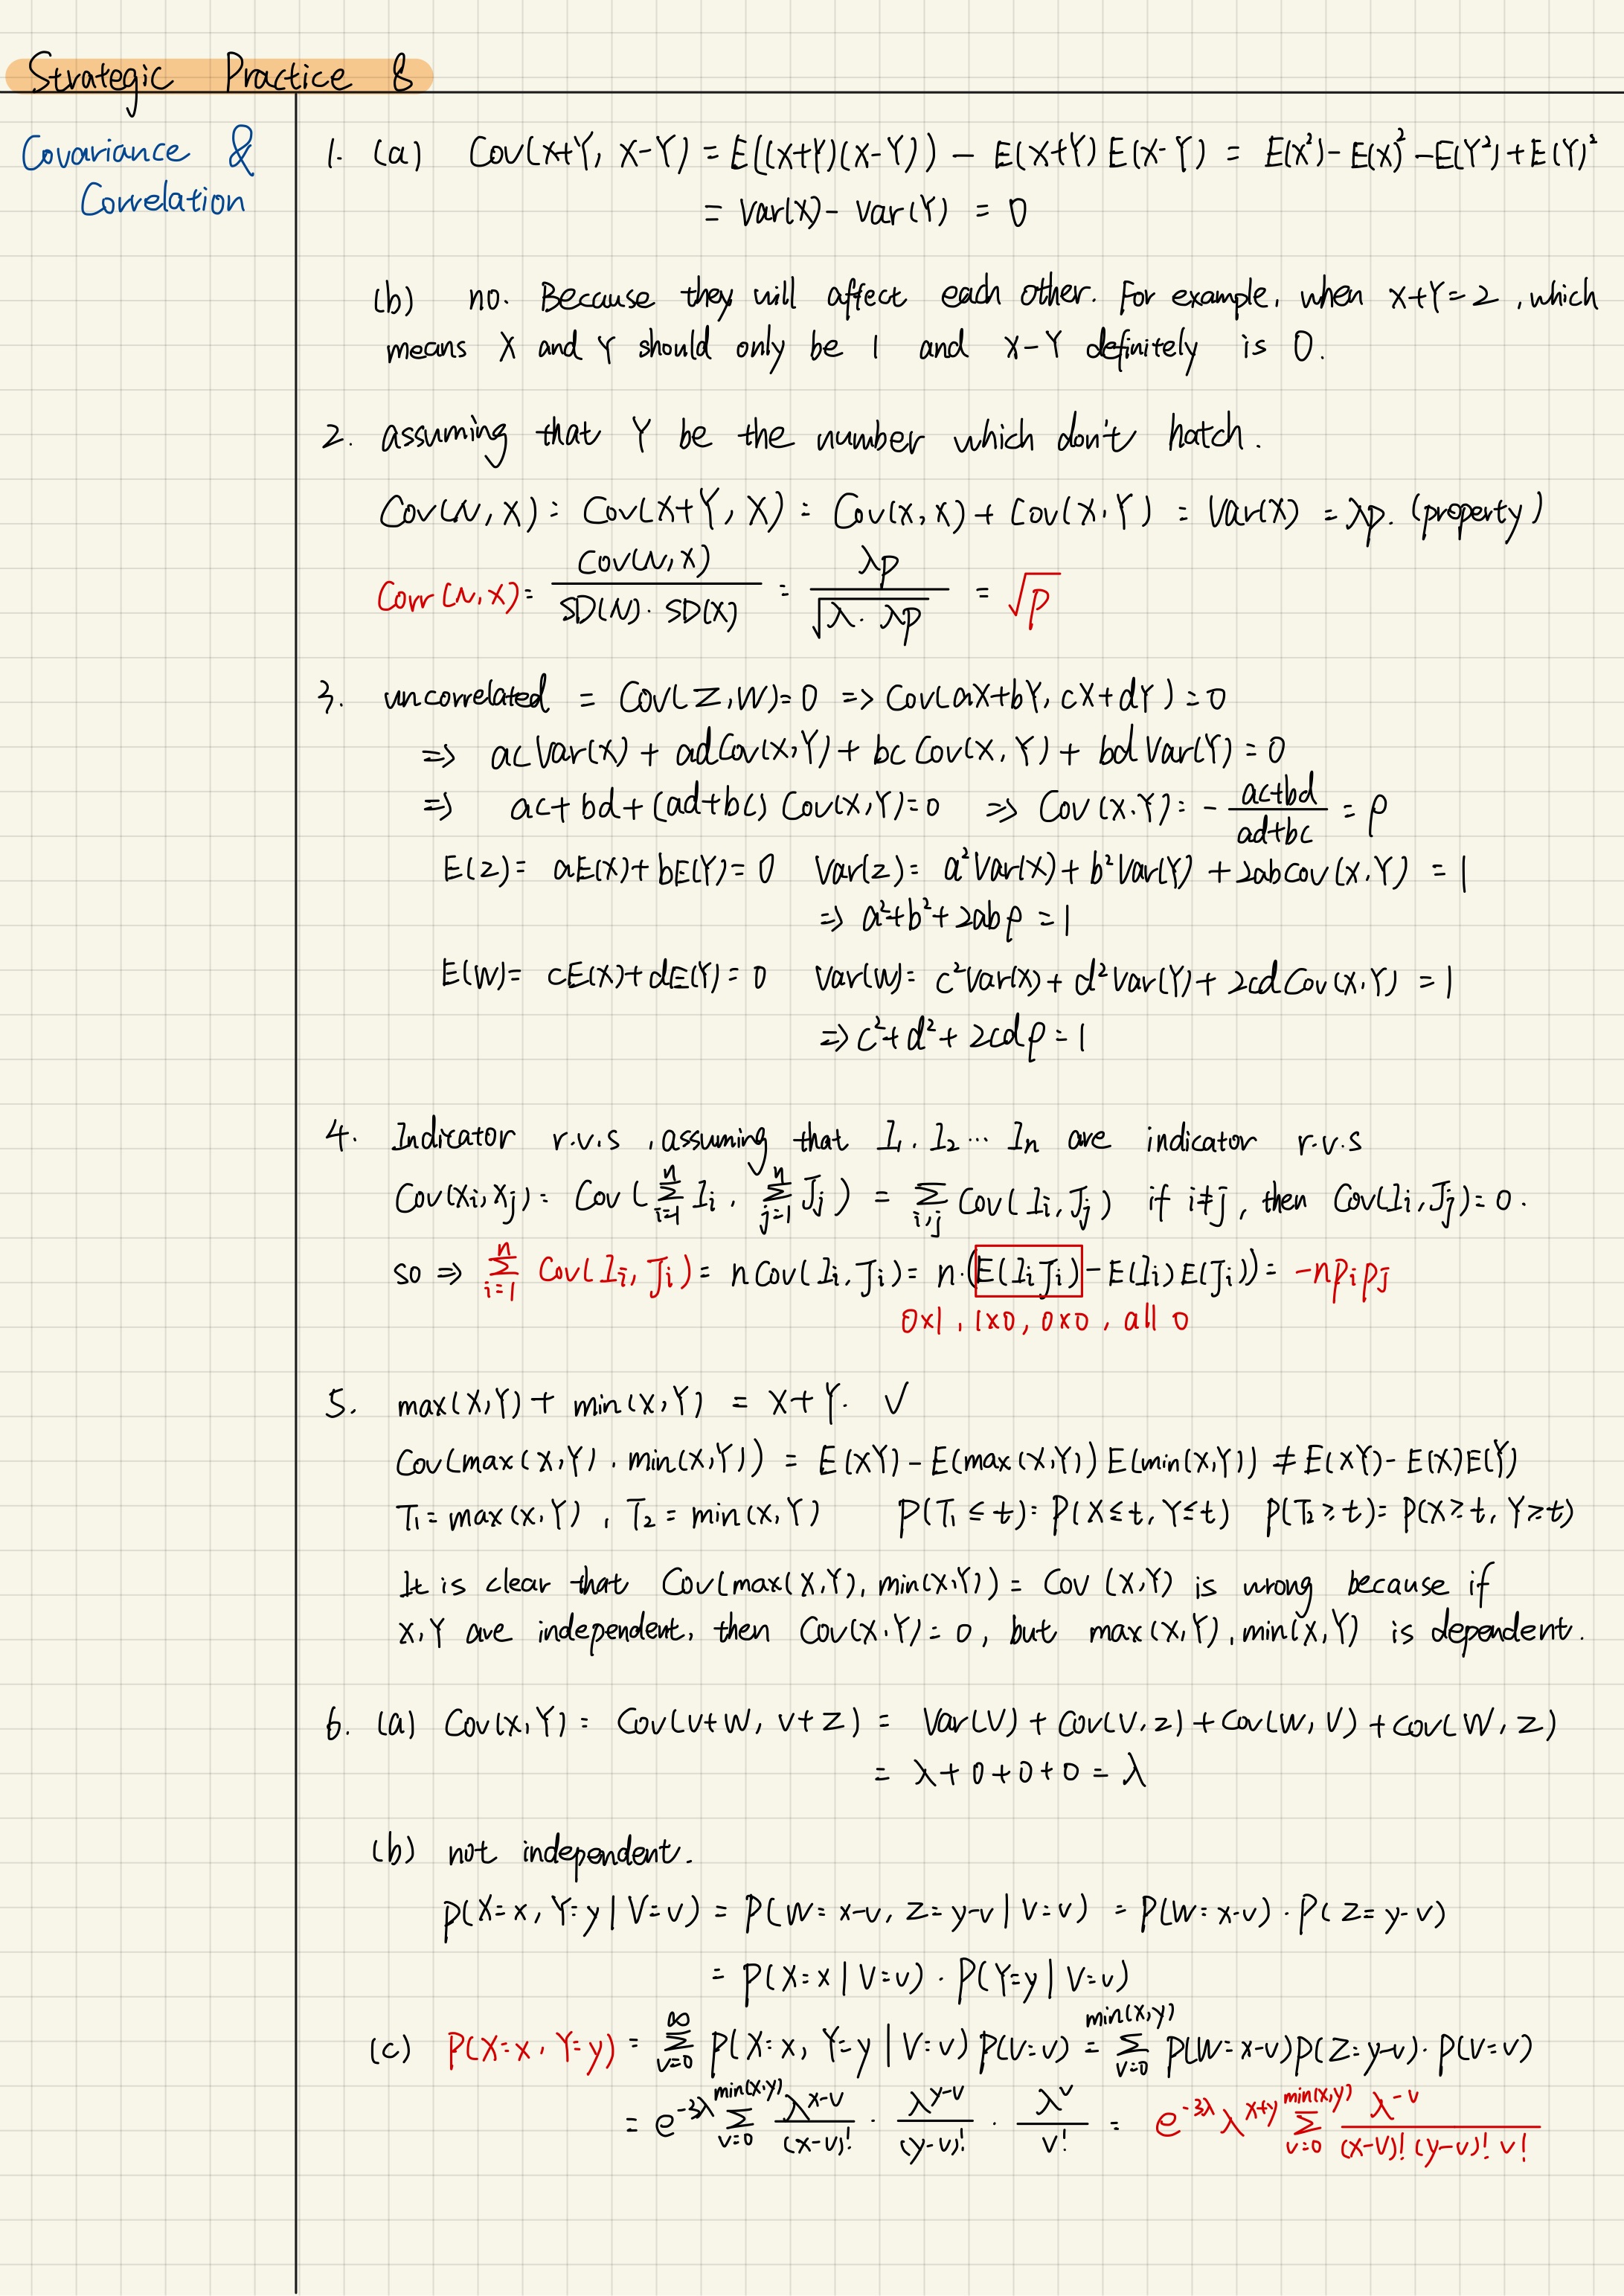 Strategic Practice 8
Covariance &
Correlation
1. (a) Cov(X+Y, X-Y) = E((X+Y)(X-Y)) - E(X+Y) E(X-Y) = E(X²) - E(X)² - E(Y²) + E(Y)²
= Var(X) - Var(Y) = 0
(b) no. Because they will affect each other. For example, when X+Y=2, which
means X and Y should only be 1 and X-Y definitely is 0.
2. assuming that Y be the number which don't hatch.
Cov(N, X) = Cov(X+Y, X) = Cov(X, X) + Cov(X, Y) = Var(X) = λp. (property)
Corr(N, X) = Cov(N, X) / (SD(N)·SD(X)) = λp / √(λ·λp) = √p
3. uncorrelated = Cov(Z, W) = 0 => Cov(aX+bY, cX+dY) = 0
=> acVar(X) + adCov(X, Y) + bc Cov(X, Y) + bd Var(Y) = 0
=> ac + bd + (ad+bc) Cov(X, Y) = 0 => Cov(X, Y) = - (ac+bd)/(ad+bc) = ρ
E(Z) = aE(X) + bE(Y) = 0 Var(Z) = a²Var(X) + b²Var(Y) + 2abCov(X, Y) = 1
=> a²+b²+2abρ = 1
E(W) = cE(X) + dE(Y) = 0 Var(W) = c²Var(X) + d²Var(Y) + 2cdCov(X, Y) = 1
=> c²+d²+2cdρ = 1
4. Indicator r.v.s, assuming that I₁, I₂ ... In are indicator r.v.s
Cov(Xi, Xj) = Cov(∑_{i=1}^{n} Ii, ∑_{j=1}^{n} Jj) = ∑_{i,j} Cov(Ii, Jj) if i≠j, then Cov(Ii, Jj) = 0.
so => ∑_{i=1}^{n} Cov(Ii, Ji) = nCov(Ii, Ji) = n·(E(IiJi) - E(Ii)E(Ji)) = -npipj
0x1, 1x0, 0x0, all 0
5. max(X,Y) + min(X,Y) = X+Y. √
Cov(max(X,Y), min(X,Y)) = E(XY) - E(max(X,Y)) E(min(X,Y)) ≠ E(XY) - E(X)E(Y)
T₁ = max(X,Y), T₂ = min(X,Y) P(T₁ ≤ t) = P(X≤t, Y≤t) P(T₂ ≥ t) = P(X≥t, Y≥t)
It is clear that Cov(max(X,Y), min(X,Y)) = Cov(X,Y) is wrong because if
X,Y are independent, then Cov(X,Y) = 0, but max(X,Y), min(X,Y) is dependent.
6. (a) Cov(X,Y) = Cov(V+W, V+Z) = Var(V) + Cov(V,Z) + Cov(W,V) + Cov(W,Z)
= λ+0+0+0 = λ
(b) not independent.
P(X=x, Y=y | V=v) = P(W=x-v, Z=y-v | V=v) = P(W=x-v) · P(Z=y-v)
= P(X=x | V=v) · P(Y=y | V=v)
(c) P(X=x, Y=y) = ∑_{v=0}^{∞} P(X=x, Y=y | V=v) P(V=v) = ∑_{v=0}^{min(x,y)} P(W=x-v)P(Z=y-v)·P(V=v)
= e^{-3λ} ∑_{v=0}^{min(x,y)} λ^{x-v}/(x-v)! · λ^{y-v}/(y-v)! · λ^{v}/v! = e^{-3λ} λ^{x+y} ∑_{v=0}^{min(x,y)} λ^{-v}/((x-v)!(y-v)!v!)